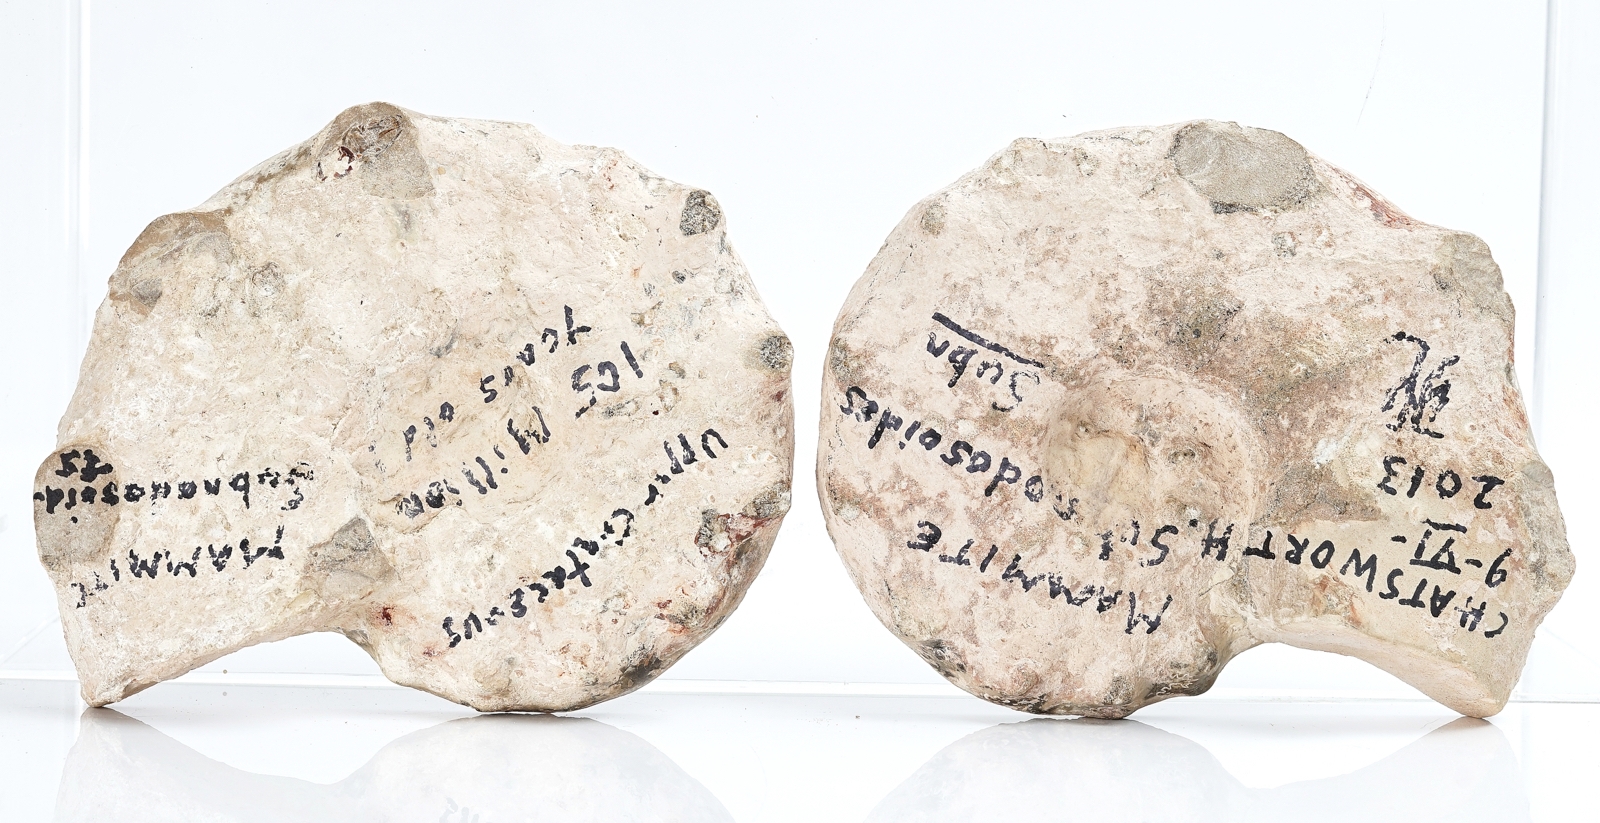 MAMMITE
Subnodosoid-
es
105
Million
years old
Upper Cretaceous
Subn
MAMMITE
Subnodosoides
CHATSWORTH.
9-VI-
2013